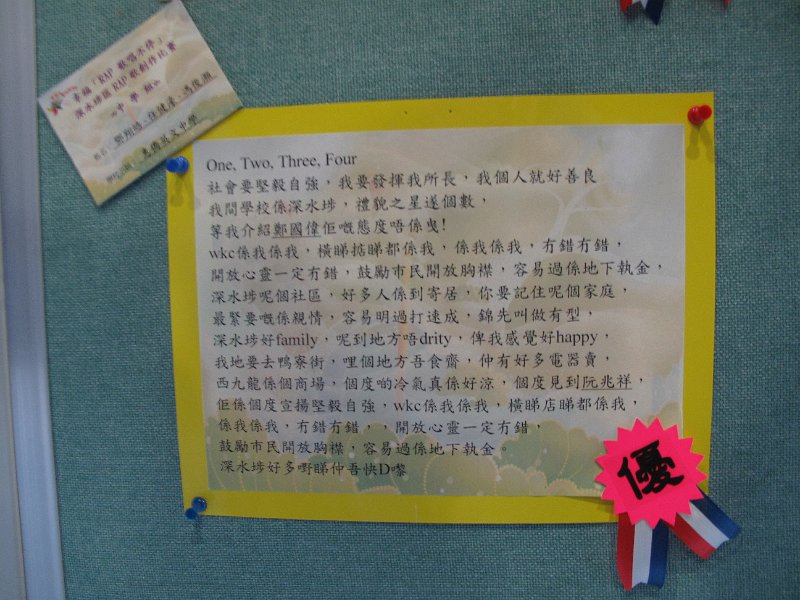 幸福「RAP 歌唱水停」
深水埗區 RAP 歌創作比賽
中學組
惠僑英文中學
One, Two, Three, Four
社會要堅毅自強，我要發揮我所長，我個人就好善良
我間學校係深水埗，禮貌之星逐個數，
等我介紹鄭國偉佢嘅態度唔係曳!
wkc係我係我，橫睇掂睇都係我，係我係我，冇錯冇錯，
開放心靈一定冇錯，鼓勵市民開放胸襟，容易過係地下執金，
深水埗呢個社區，好多人係到寄居，你要記住呢個家庭，
最緊要嘅係親情，容易明過打速成，錦先叫做有型，
深水埗好family，呢到地方唔drity，俾我感覺好happy，
我地要去鴨寮街，哩個地方吾食齋，仲有好多電器賣，
西九龍係個商場，個度啲冷氣真係好涼，個度見到阮兆祥，
佢係個度宣揚堅毅自強，wkc係我係我，橫睇店睇都係我，
係我係我，冇錯冇錯，，開放心靈一定冇錯，
鼓勵市民開放胸襟，容易過係地下執金。
深水埗好多嘢睇仲吾快D嚟
優